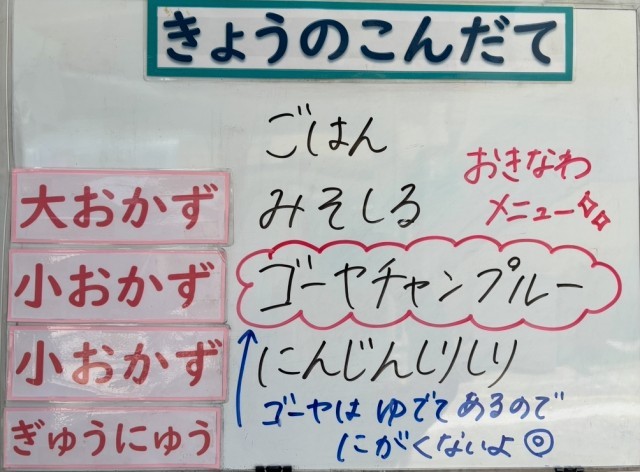 きょうのこんだて
ごはん
おきなわ
メニュー
大おかず
みそしる
小おかず
ゴーヤチャンプルー
小おかず
にんじんしりしり
ゴーヤは ゆでてあるので
にがくないよ◎
ぎゅうにゅう